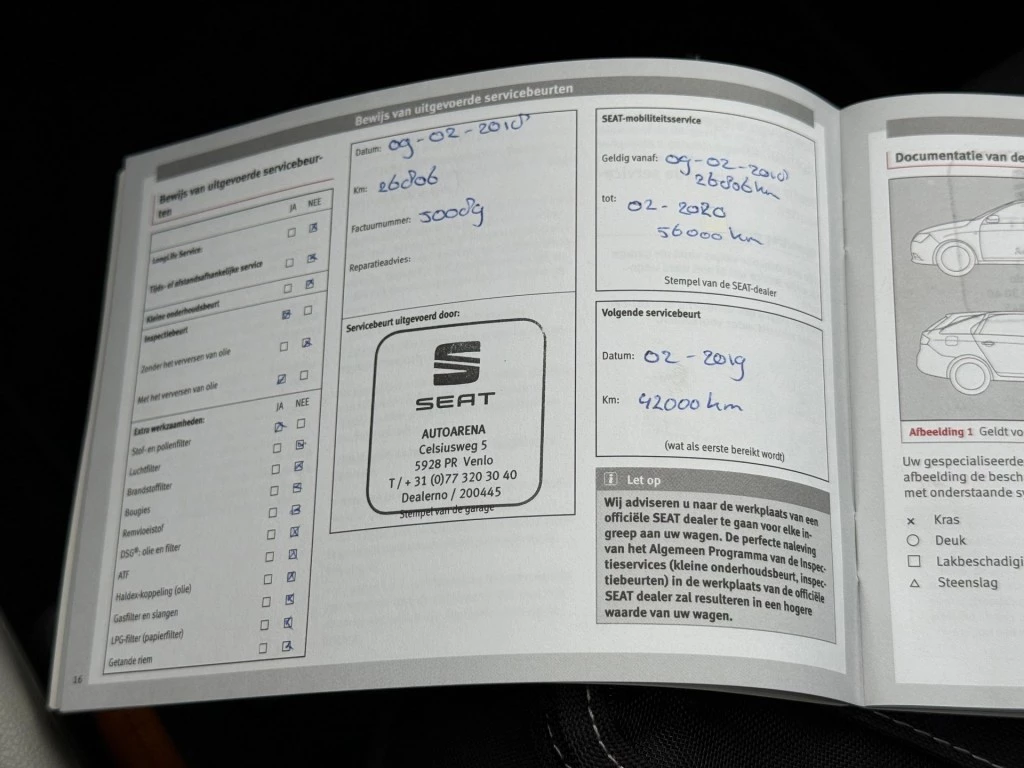 Bewijs van uitgevoerde servicebeurten
Bewijs van uitgevoerde servicebeur-
ten
JA NEE
LongLife Service:
Tijds- of afstandsafhankelijke service
Kleine onderhoudsbeurt
Inspectiebeurt
Zonder het verversen van olie
Met het verversen van olie
Extra werkzaamheden:
JA NEE
Stof- en pollenfilter
Luchtfilter
Brandstoffilter
Bougies
Remvloeistof
DSG®: olie en filter
ATF
Haldex-koppeling (olie)
Gasfilter en slangen
LPG-filter (papierfilter)
Getande riem
16
Datum: 09-02-2018
Km: 26806
Factuurnummer: 50089
Reparatieadvies:
Servicebeurt uitgevoerd door:
SEAT
AUTOARENA
Celsiusweg 5
5928 PR Venlo
T / + 31 (0)77 320 30 40
Dealerno / 200445
Stempel van de garage
SEAT-mobiliteitsservice
Geldig vanaf: 09-02-2018
26806 km
tot: 02-2020
56000 km
Stempel van de SEAT-dealer
Volgende servicebeurt
Datum: 02-2019
Km: 42000 km
(wat als eerste bereikt wordt)
i Let op
Wij adviseren u naar de werkplaats van een
officiële SEAT dealer te gaan voor elke in-
greep aan uw wagen. De perfecte naleving
van het Algemeen Programma van de Inspec-
tieservices (kleine onderhoudsbeurt, inspec-
tiebeurten) in de werkplaats van de officiële
SEAT dealer zal resulteren in een hogere
waarde van uw wagen.
Documentatie van de
Afbeelding 1 Geldt vo
Uw gespecialiseerde
afbeelding de besch
met onderstaande s
× Kras
○ Deuk
□ Lakbeschadigi
△ Steenslag